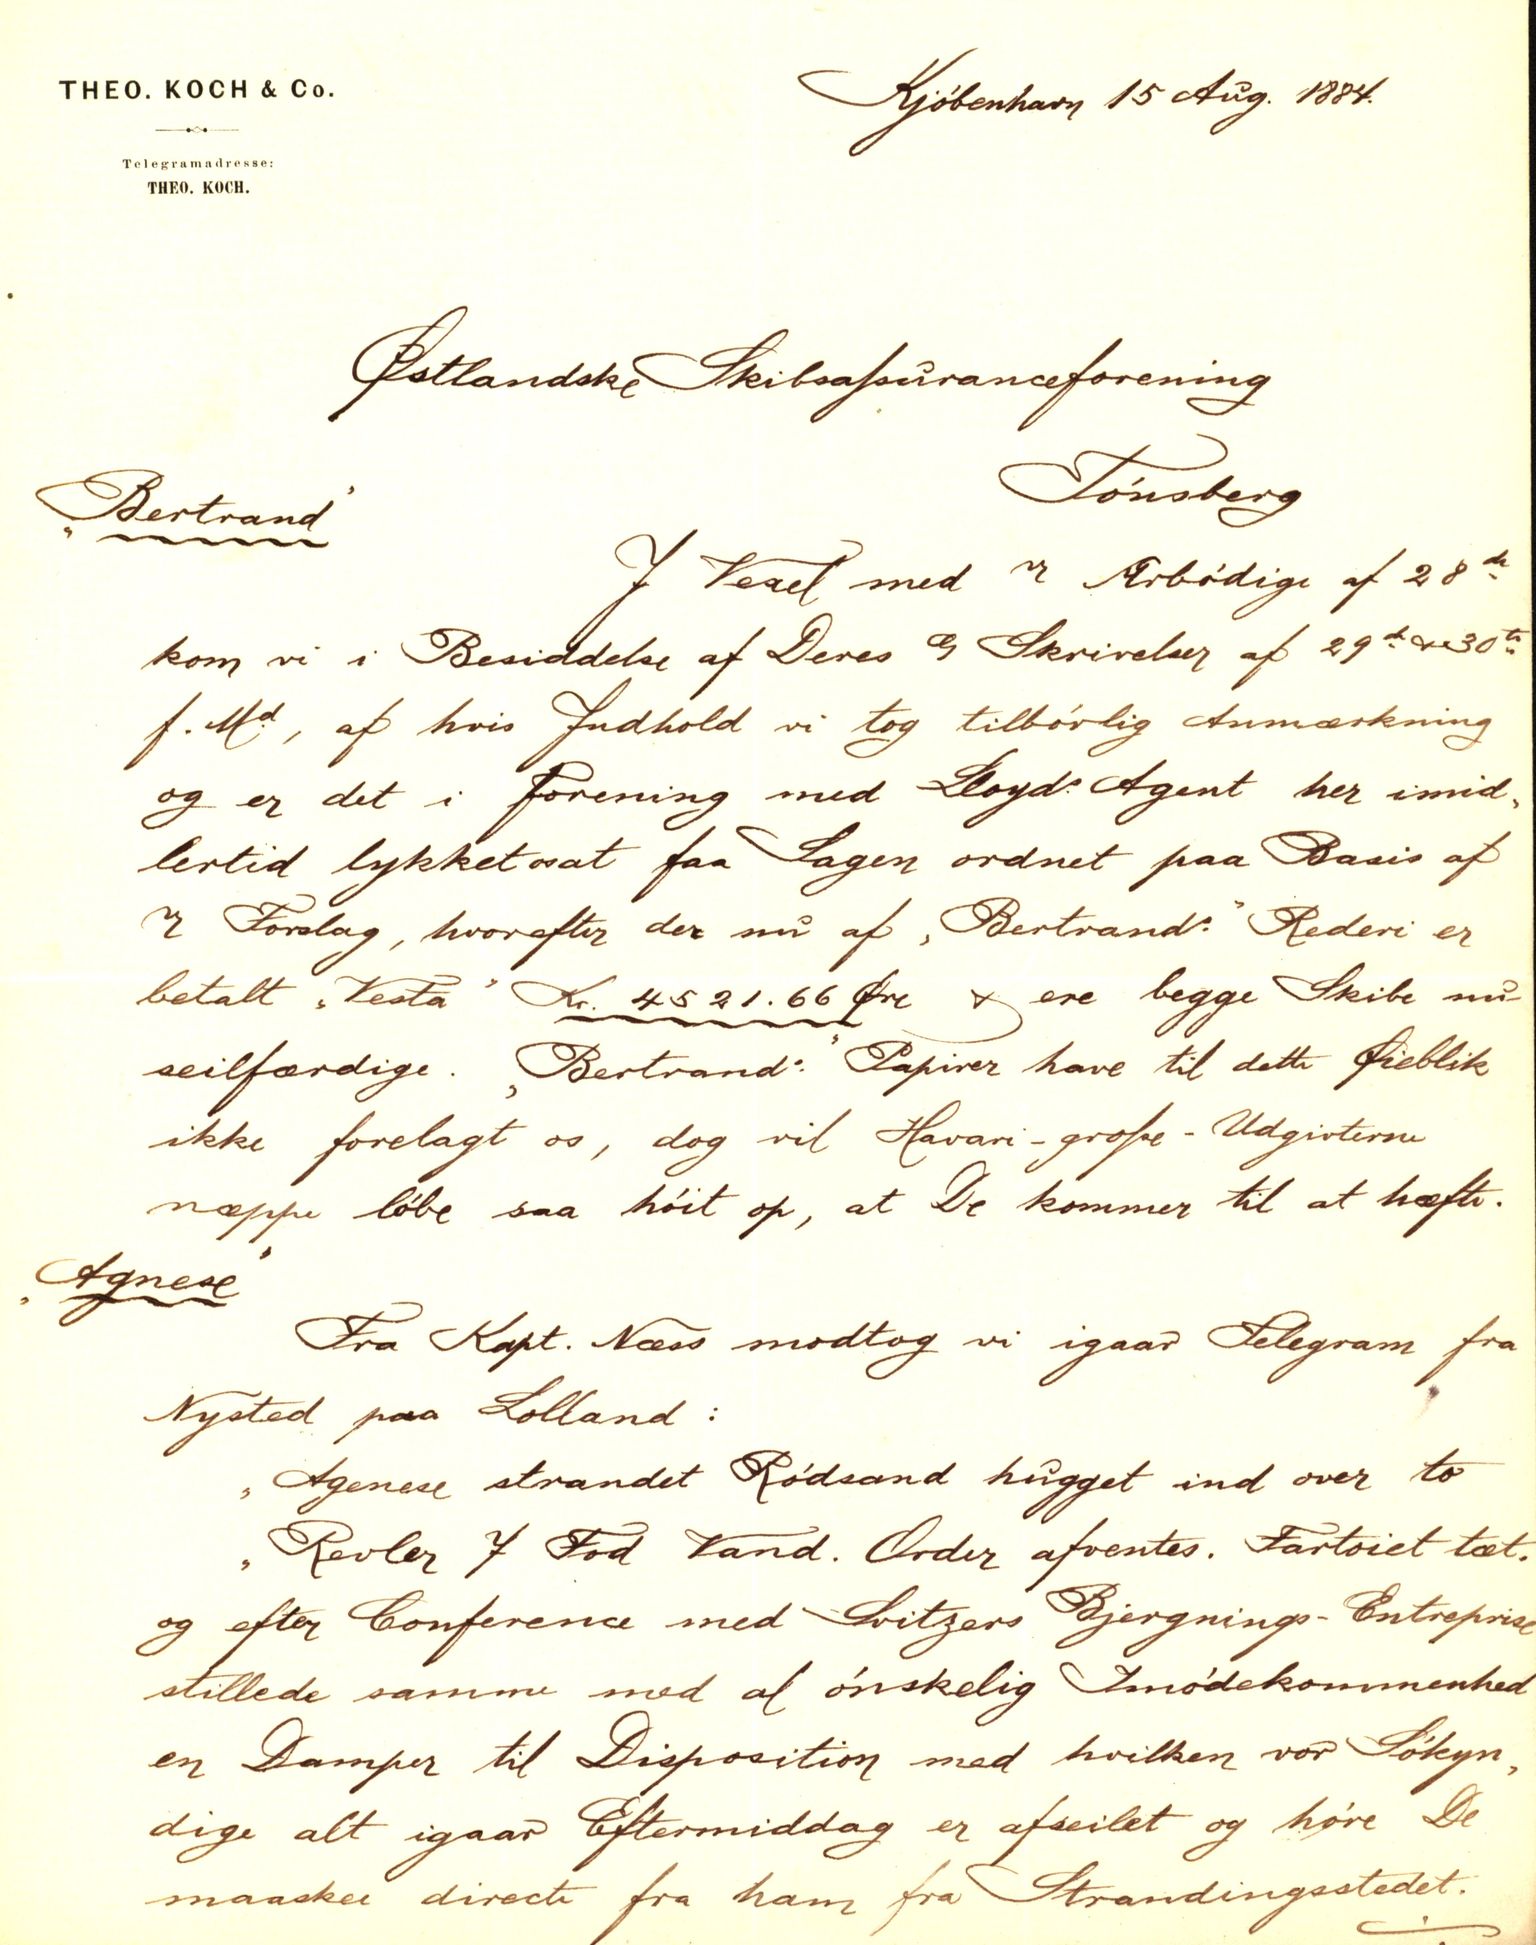 THEO. KOCH & Co.
Kjöbenhavn 15 Aug. 1884.
Telegramadresse:
THEO. KOCH.
Østlandske Skibsassuranceforening
Tönsberg
„Bertrand"
I Vexel med Ærbödige af 28de
kom vi i Besiddelse af Deres Skrivelser af 29de & 30te
f. Md, af hvis Indhold vi tog tilbörlig Anmærkning
og er det i Forening med Lloyds Agent her imid„
lertid lykket os at faa Sagen ordnet paa Basis af
Forslag, hvorefter der nu af „Bertrands" Rederi er
betalt „Vesta" Kr. 4521.66 Øre & ere begge Skibe nu
seilfærdige. „Bertrands" Papirer have til dette Øieblik
ikke forelagt os, dog vil Havari-grosse-Udgivterne
næppe löbe saa höit op, at De kommer til at hæfte.
„Agnese"
Fra Kapt. Næss modtog vi igaar Telegram fra
Nysted paa Lolland:
„Agenese strandet Rödsand hugget ind over to
„Revler 7 Fod Vand. Order afventes. Fartöiet tæt.
og efter Conference med Svitzers Bjergnings-Entreprise
stillede samme med al önskelig Imödekommenhed
en Damper til Disposition med hvilken vor Sökyn„
dige alt igaar Eftermiddag er afseilet og höre De
maaskee directe fra ham fra Strandingsstedet.